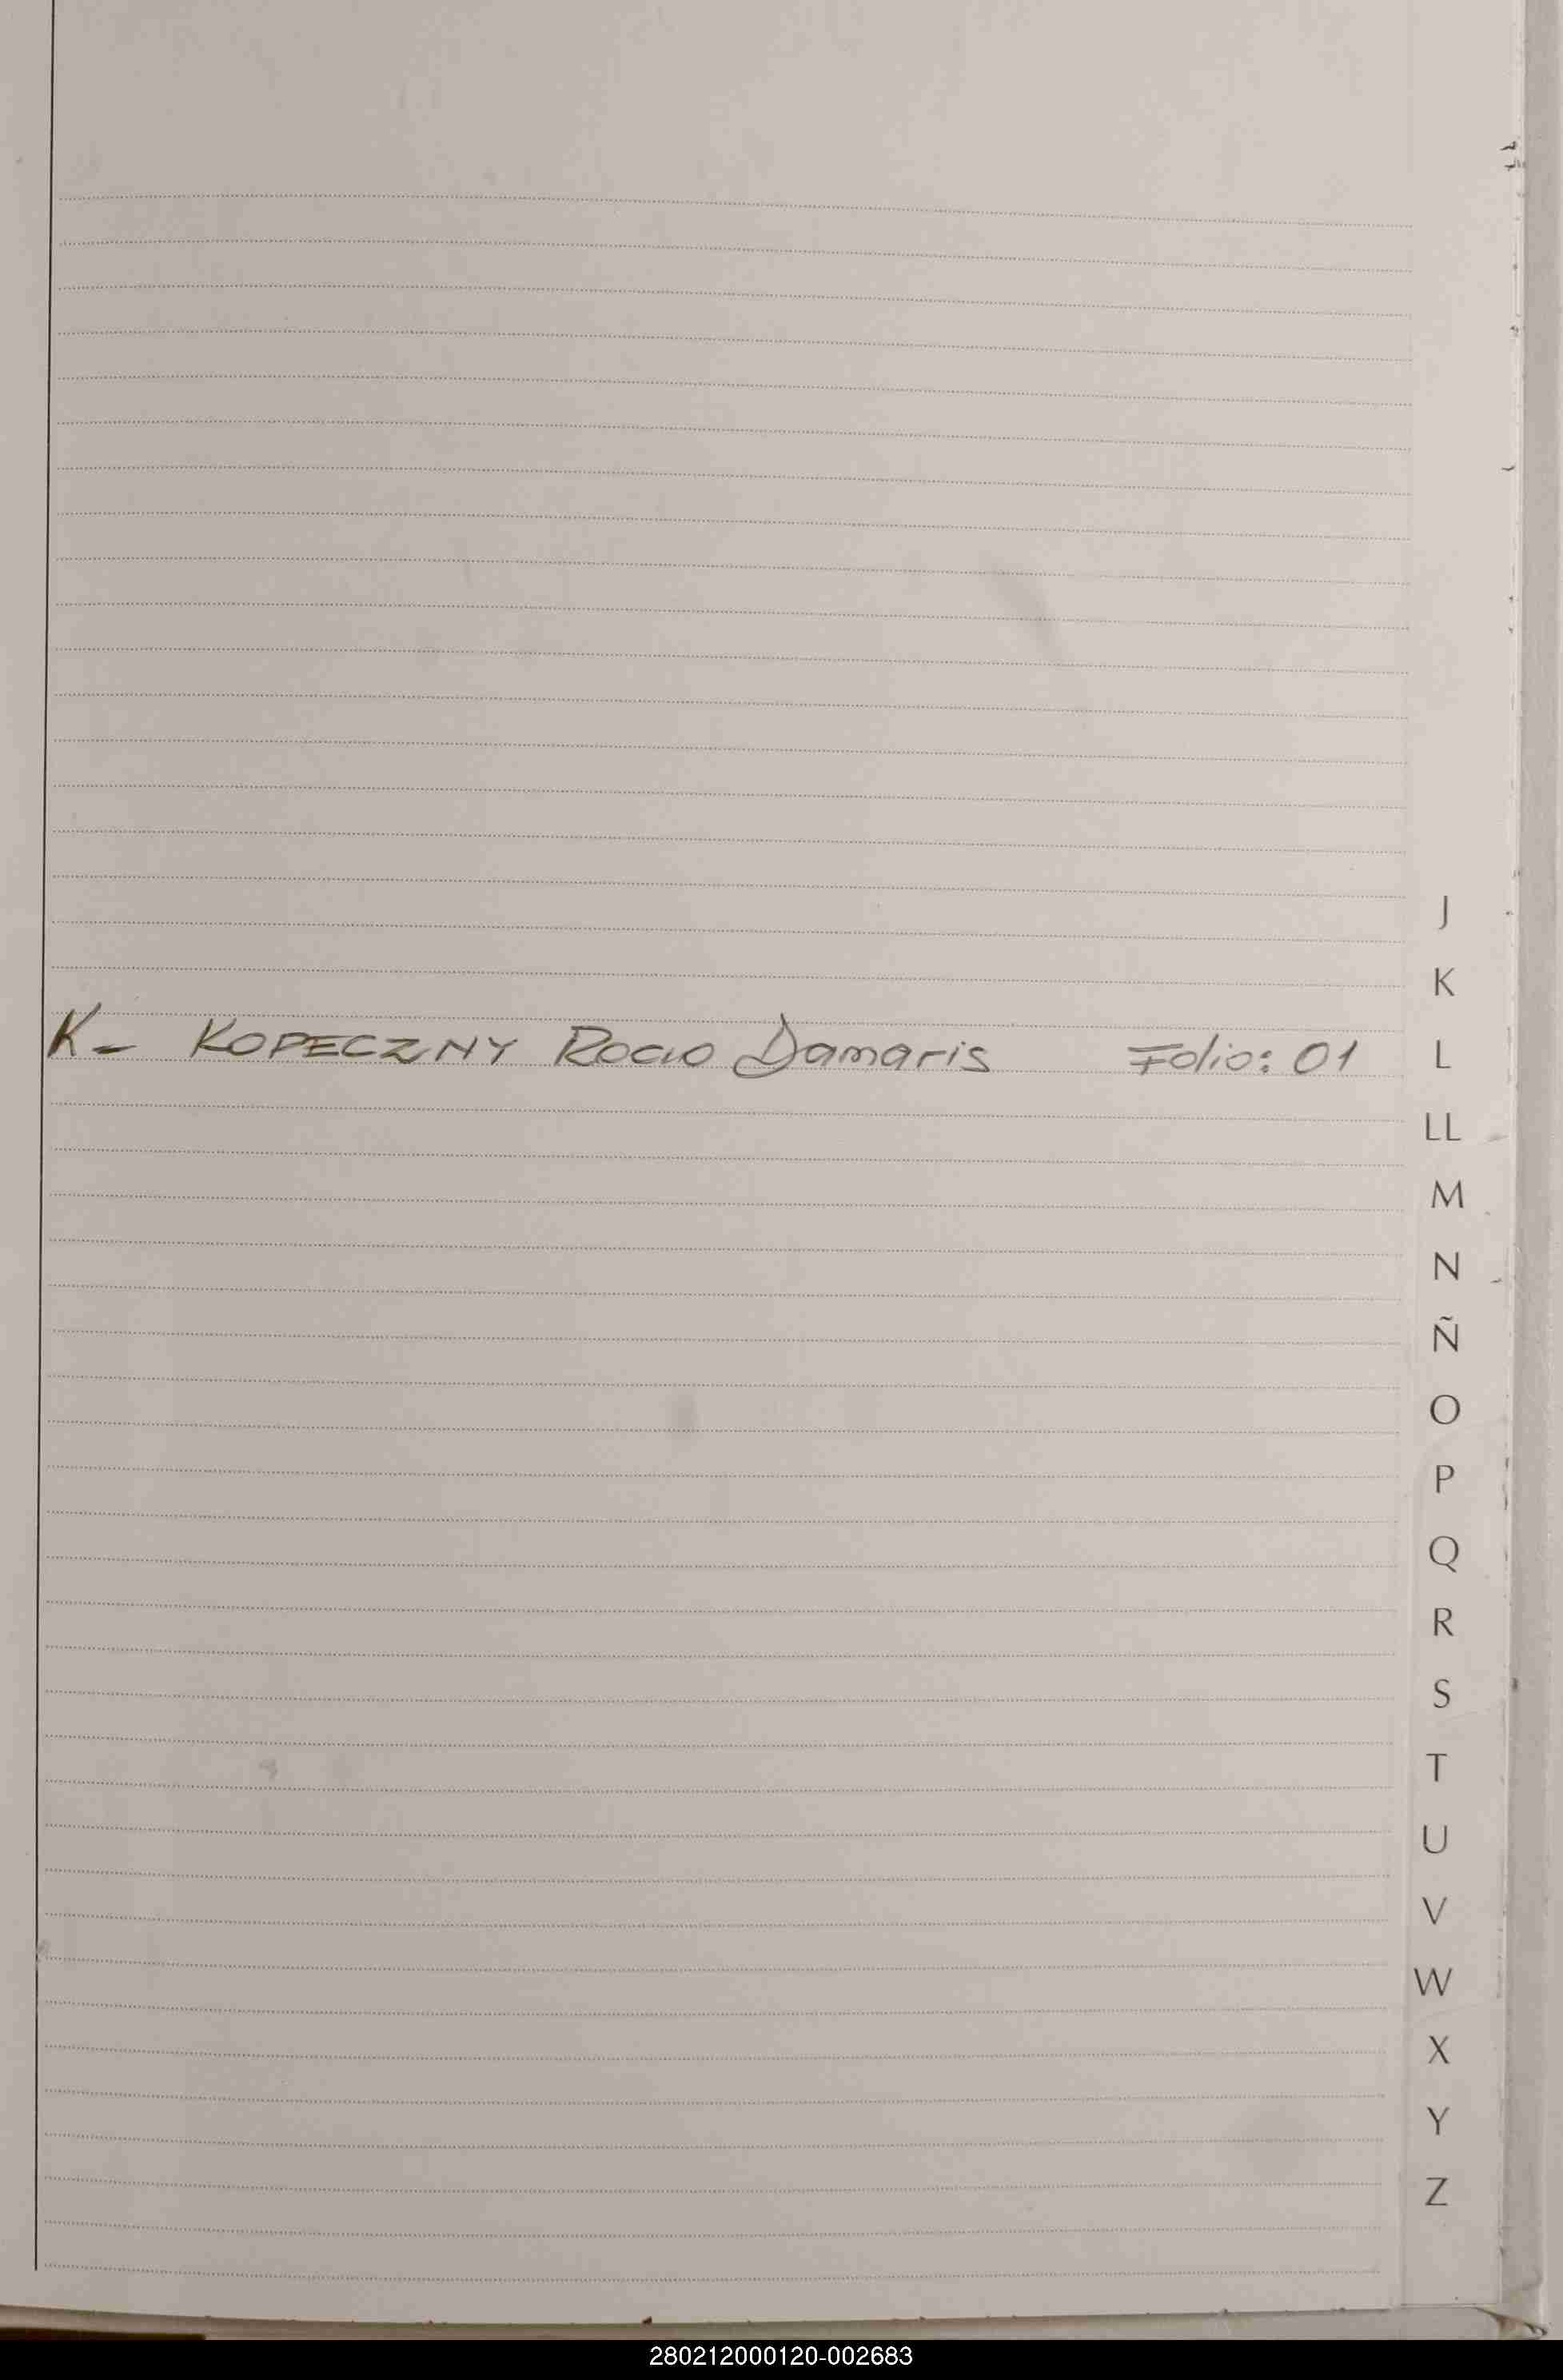 J
K
K- KOPECZNY ROCIO Damaris Folio: 01
L
LL
M
N
Ñ
O
P
Q
R
S
T
U
V
W
X
Y
Z
280212000120-002683